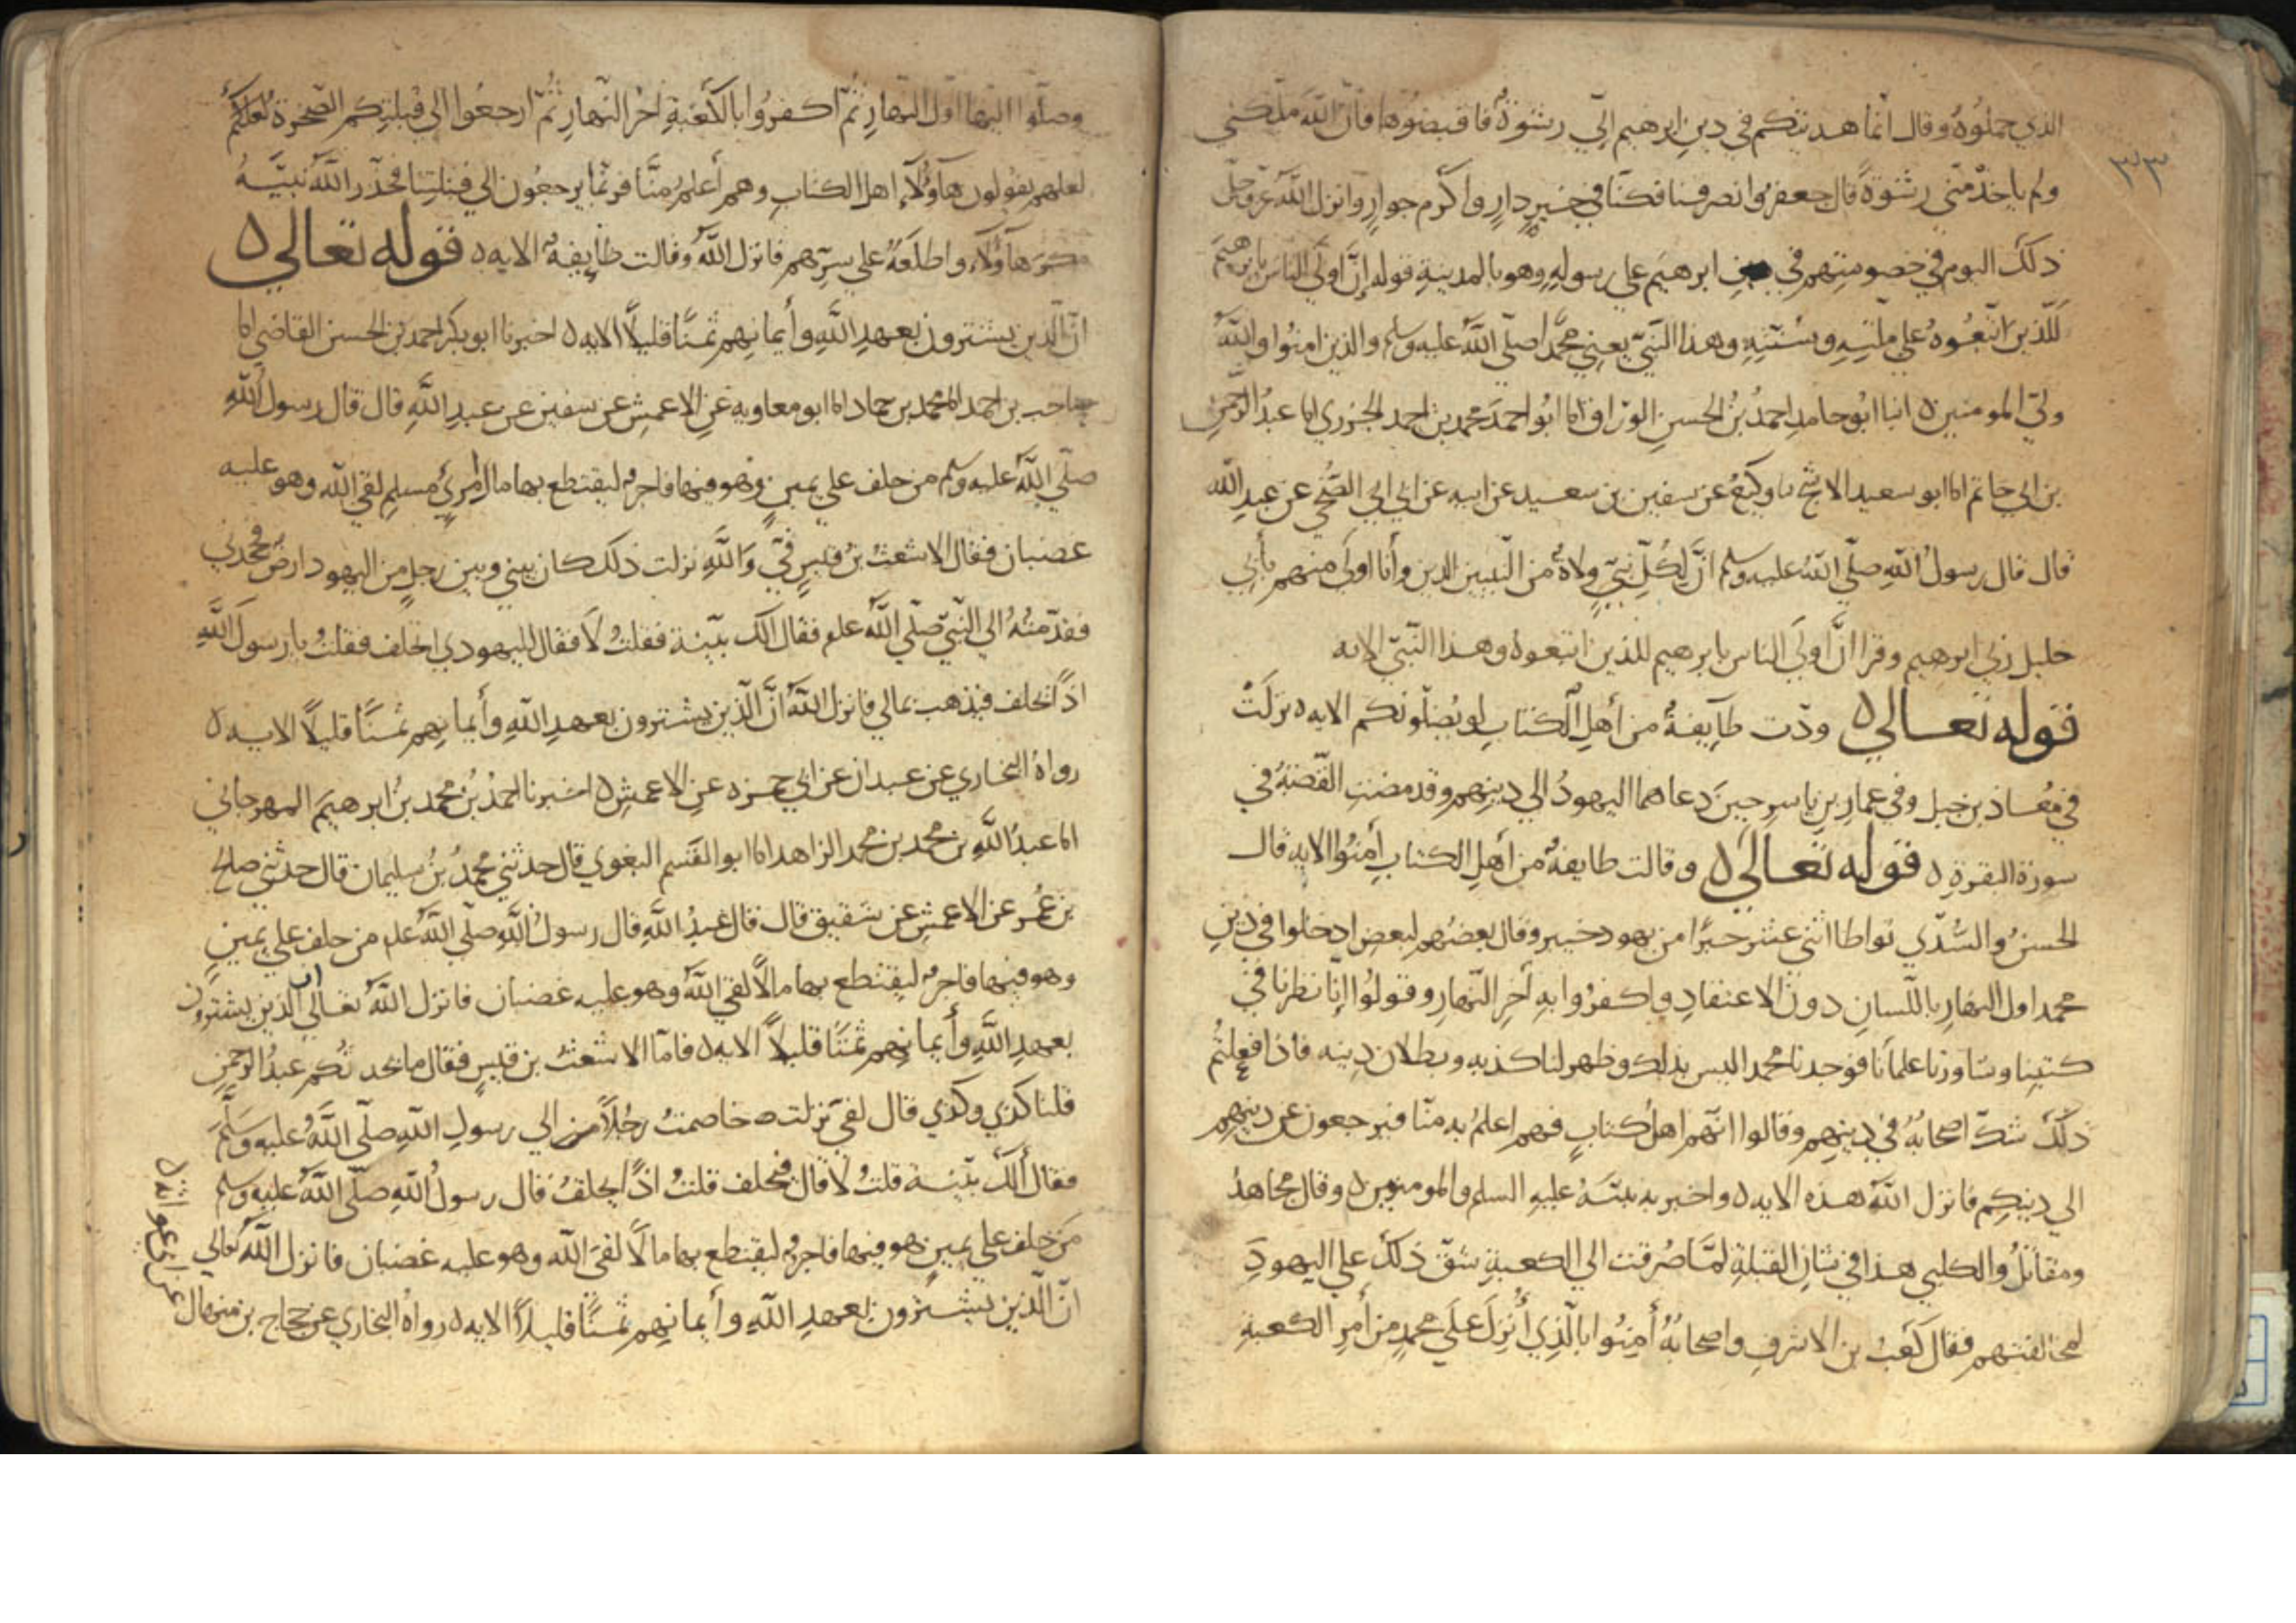 الذي حملوه وقال انما هديتكم في دين ابرهيم اليّ رشوة فاقبضوها فانّ الله ملّكني
ولم ياخذ مني رشوة قال جعفر وانصرفنا فكنّا في خير دارٍ واكرم جوارٍ وانزل الله عزوجلّ
ذلك اليوم في خصومتهم في ابرهيم على رسوله وهو بالمدينة قوله إنّ اولى الناس بابرهيم
للّذين اتبعُوه على ملّته وسنّته وهذا النبيّ يعني محمّداً صلّى الله عليه وسلم والذين امنوا والله
وليّ المومنين ه انبا ابو حامد احمدُ بنُ الحسن الورّاق انا ابو احمدَ محمد بن احمد الجزري انا عبدُ الرّحمن
بن ابي حاتم انا ابو سعيد الاشج نا وكيعُ عن سفين بن سعيد عن ابيه عن ابي الضُّحى عن عبدِ الله
قال قال رسولُ اللهِ صلّى اللهُ عليه وسلم انَّ لكُلِّ نبيٍّ ولاةً من النّبيين الذين وأنا اولَى منهم بأبي
خليل ربي ابرهيم وقرا انّ اولَى الناس بابرهيم للذين اتبعوه وهذا النّبيّ الايه
قوله تعالى ه ودّت طآيفةٌ من أهلِ الكتابِ لو يُضلّونكم الايه ه نزلَتْ
في مُعاذ بن جبل وفي عمارِ بنِ ياسر حينَ دعاهما اليهودُ الى دينهم وقد مضتِ القصةُ في
سورة البقرة ه قوله تعالى ه وقالت طايفةٌ من أهلِ الكتابِ أمنُوا الايه قال
الحسنُ والسُّدّي تواطا اثنى عشر حبرًا من يهود خيبر وقال بعضُهم لبعض ادخلوا في دينِ
محمد اول النهارِ باللّسانِ دونَ الاعتقادِ واكفرُوا بهِ آخِرِ النّهارِ وقولُوا إنّا نظرنا في
كتبِنا وشاورنا علماءنا فوجدنا محمد اليس بذلك وظهر لنا كذبه وبطلان دينه فاذا فعلتُم
ذلك شكّ اصحابُهُ في دينهم وقالوا انّهم اهلُ كتابٍ فهم اعلمُ به منّا فيرجعون عن دينهم
الى دينكم فانزل اللهُ هذه الايه ه واخبر به نبيَّهُ عليهِ السلم والمومنين ه وقال مجاهدُ
ومقاتلُ والكلبي هذا في شانِ القبلةِ لمَّا صُرفت الى الكعبةِ شقّ ذلك على اليهودِ
لمخالفتهم فقال كَعبُ بن الاشرفِ واصحابُهُ أمِنُوا بالّذِي أُنزِلَ علَى محمدٍ من أمرِ الكعبةِ
وصلّوا اليها اول النهارِ ثُمّ اكفرُوا بالكعبةِ اخرَ النهارِ ثُمّ ارجعُوا الى قبلتِكم الصّخرةِ لعلكم
لعلهم يقولون هآؤُلآءِ اهل الكتابِ وهم أعلمُ منَّا فربّما يرجعُون الى قبلتِنا فحذّر اللهُ نبيَّهُ
مكرَ هآؤلاء واطلعَهُ على سرّهم فانزل اللهُ وقالت طايفةٌ الايه ه قوله تعالى ه
انّ الّذين يشترون بعهدِ اللهِ وأيمانِهم ثمنًا قليلاً الايه ه اخبرنا ابو بكر احمد بن الحسن القاضي انا
حاجب بن احمد انا محمد بن حماد انا ابو معاويه عن الاعمشِ عن سفين عن عبدِ اللهِ قال قال رسولُ اللهِ
صلّى اللهُ عليه وسلم من حلف على يمينٍ وهو فيها فاجر ليقتطع بها مال امرئٍ مسلمٍ لقي الله وهو عليه
غضبان فقال الاشعثُ بنُ قيسٍ فيّ واللهِ نزلت ذلك كان بيني وبين رجلٍ من اليهود ارضٌ فجحدني
فقدّمتُهُ الى النّبيّ صلّى اللهُ علم فقال الك بيّنة فقلتُ لا فقال لليهودي احلف فقلتُ يا رسولَ اللهِ
اذًا يحلف فيذهب بمالي فانزل اللهُ انَّ الّذين يشترون بعهدِ اللهِ وأيمانِهم ثمنًا قليلاً الايه ه
رواهُ البخاري عن عبدان عن ابي حمزه عن الاعمش ه اخبرنا احمدُ بنُ محمد بنُ ابرهيمَ المهرجاني
انا عبدُ اللهِ بن محمد بن محمد الزاهد انا ابو القسم البغوي قال حدثني محمدُ بنُ سليمان قال حدثني صالح
بن عُمر عن الاعمشِ عن شقيق قال قال عبدُ اللهِ قال رسولُ اللهِ صلّى اللهُ علم من حلف على يمينٍ
وهو فيها فاجر ليقتطع بها مالاً لقي اللهَ وهو عليه غضبان فانزل اللهُ تعالى ان الذين يشترون
بعهدِ اللهِ وأيمانِهم ثمنًا قليلاً الايه ه فامّا الاشعثُ بن قيسٍ فقال ما يحدثُكم عبدُ الرّحمن
قلنا كذي وكذي قال لفيّ نزلت خاصمتُ رجُلاً الى رسولِ اللهِ صلّى اللهُ عليه وسلّم
فقال ألك بيّنة قلتُ لا قال فيحلف قلتُ اذًا يحلفُ قال رسولُ اللهِ صلّى اللهُ عليه وسلم
مَن حلف على يمينٍ هو فيها فاجر ليقتطع بها مالاً لقيَ الله وهو عليه غضبان فانزل اللهُ تعالى
انّ الّذين يشترون بعهدِ اللهِ وأيمانِهم ثمنًا قليلاً الايه ه رواهُ البخاري عن حجاج بن منهال
عن ابي عوانة
٣٣